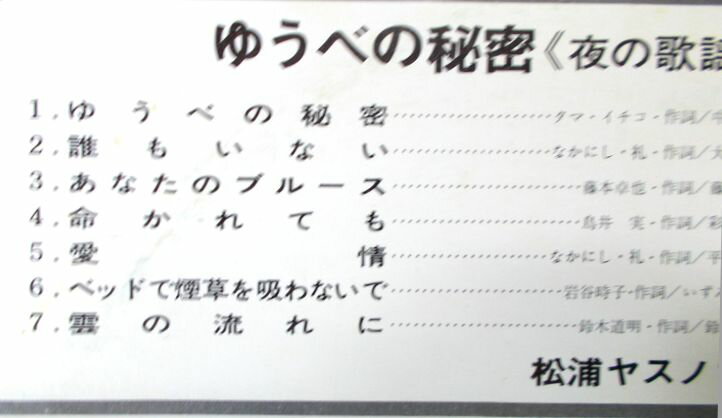 ゆうべの秘密《夜の歌謡
1.ゆうべの秘密……………………タマ・イチコ・作詞/
2.誰もいない……………………なかにし・礼・作詞/大
3.あなたのブルース……………………藤本卓也・作詞/藤
4.命かれても……………………鳥井 実・作詞/彩
5.愛情……………………なかにし・礼・作詞/平
6.ベッドで煙草を吸わないで……………………岩谷時子・作詞/いずみ
7.雲の流れに……………………鈴木道明・作詞/鈴
松浦ヤスノ